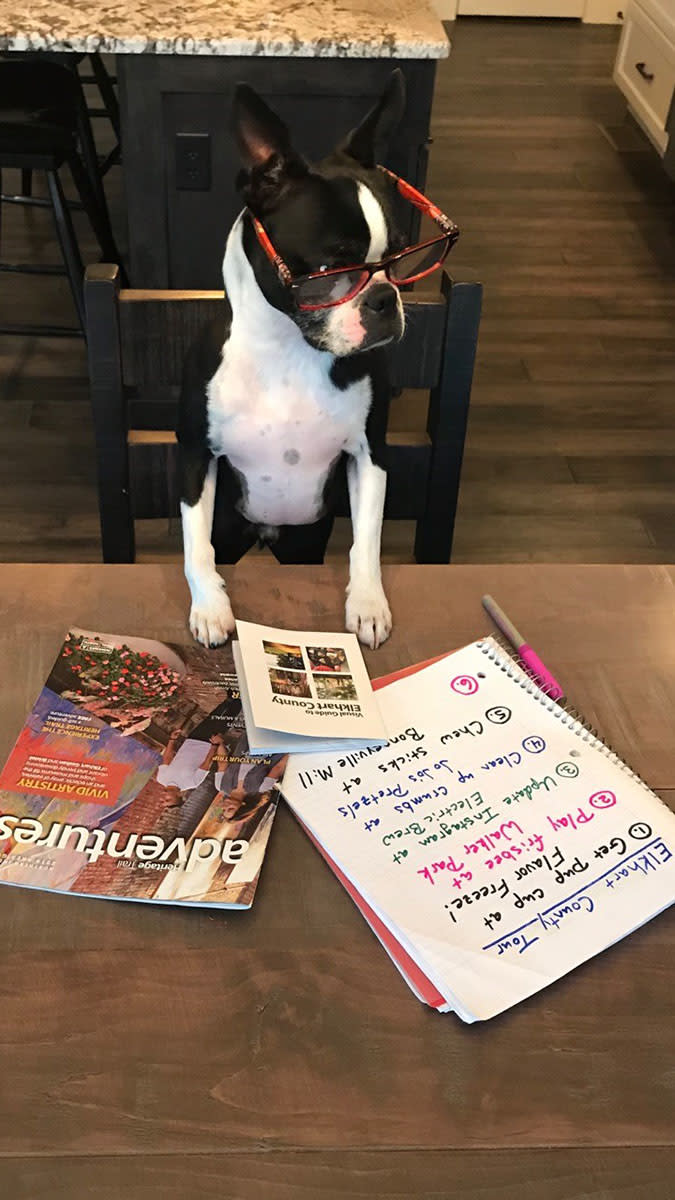 Elkhart County Tour
1. Get pup cup at
Flavor Freeze!
2. Play frisbee at
Walker Park
3. Update Instagram at
Electric Brew
4. Clean up crumbs at
JoJos Pretzels
5. Chew sticks at
Bonneyville Mill
6.
Visual Guide to
Elkhart County
Heritage Trail
adventures
VIVID ARTISTRY
EXPERIENCE THE
HERITAGE TRAIL
PLAN YOUR TRIP